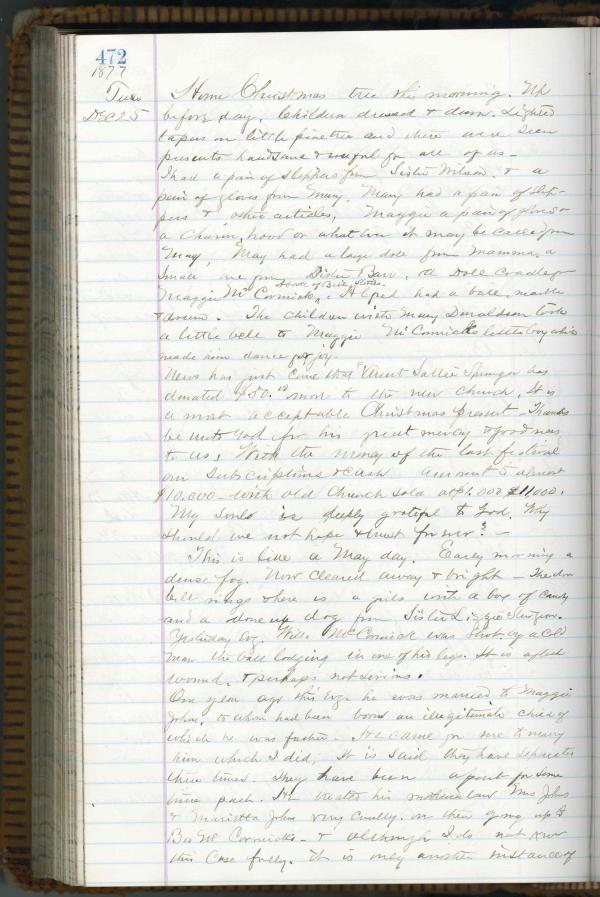 472
1877
Tues
Dec 25
Home Christmas tree this morning. Up
before day. Children dressed & down. Lighted
tapers on little pine tree and there were seen
presents handsome & useful for all of us—
I had a pair of slippers from Sister Wilson. & a
pair of gloves from Mary, Mary had a pair of slip-
pers & other articles, Maggie a pair of gloves &
a charm, hood or what ever it may be called from
May, May had a large doll from Mamma, a
small one from Sister Barr, a Doll Cradle from
Book of Bible
Maggie McCormick, Alfred had a ball, marble
& drum. The children with Mary Donaldson took
a little bell to Maggie McCormick little boy which
made him dance for joy.
News has just come that "Aunt Sallie Springer has
donated $50.00 more to the new church, It is
a most acceptable Christmas present. Thanks
be unto God for his great mercy & goodness
to us, With the money of the last festival
our subscriptions & cash amount to almost
$10,000 - with old Church sold at $1.000 $11,000.
My soul is deeply grateful to God. Why
should we not hope & trust forever? —
This is like a May day. Early morning a
dense fog. Now cleared away & bright — The door
bell rings & here is a girl with a box of candy
and a done up dog from Sister Lizzie
Yesterday Evg. Will McCormick was shot by a cold
man the ball lodging in one of his legs. It is a flesh
wound, & perhaps not serious.
One year ago this Evg. he was married to Maggie
John, to whom had been born an illegitimate child of
which he was father. He came for me to marry
him which I did, It is said they have separated
three times. They have been apart for some
time past. He treated his mother in law Mrs John
& Marietta John very cruelly. on their going up to
Bro McCormicks - & although I do not know
this case fully. it is only another instance of